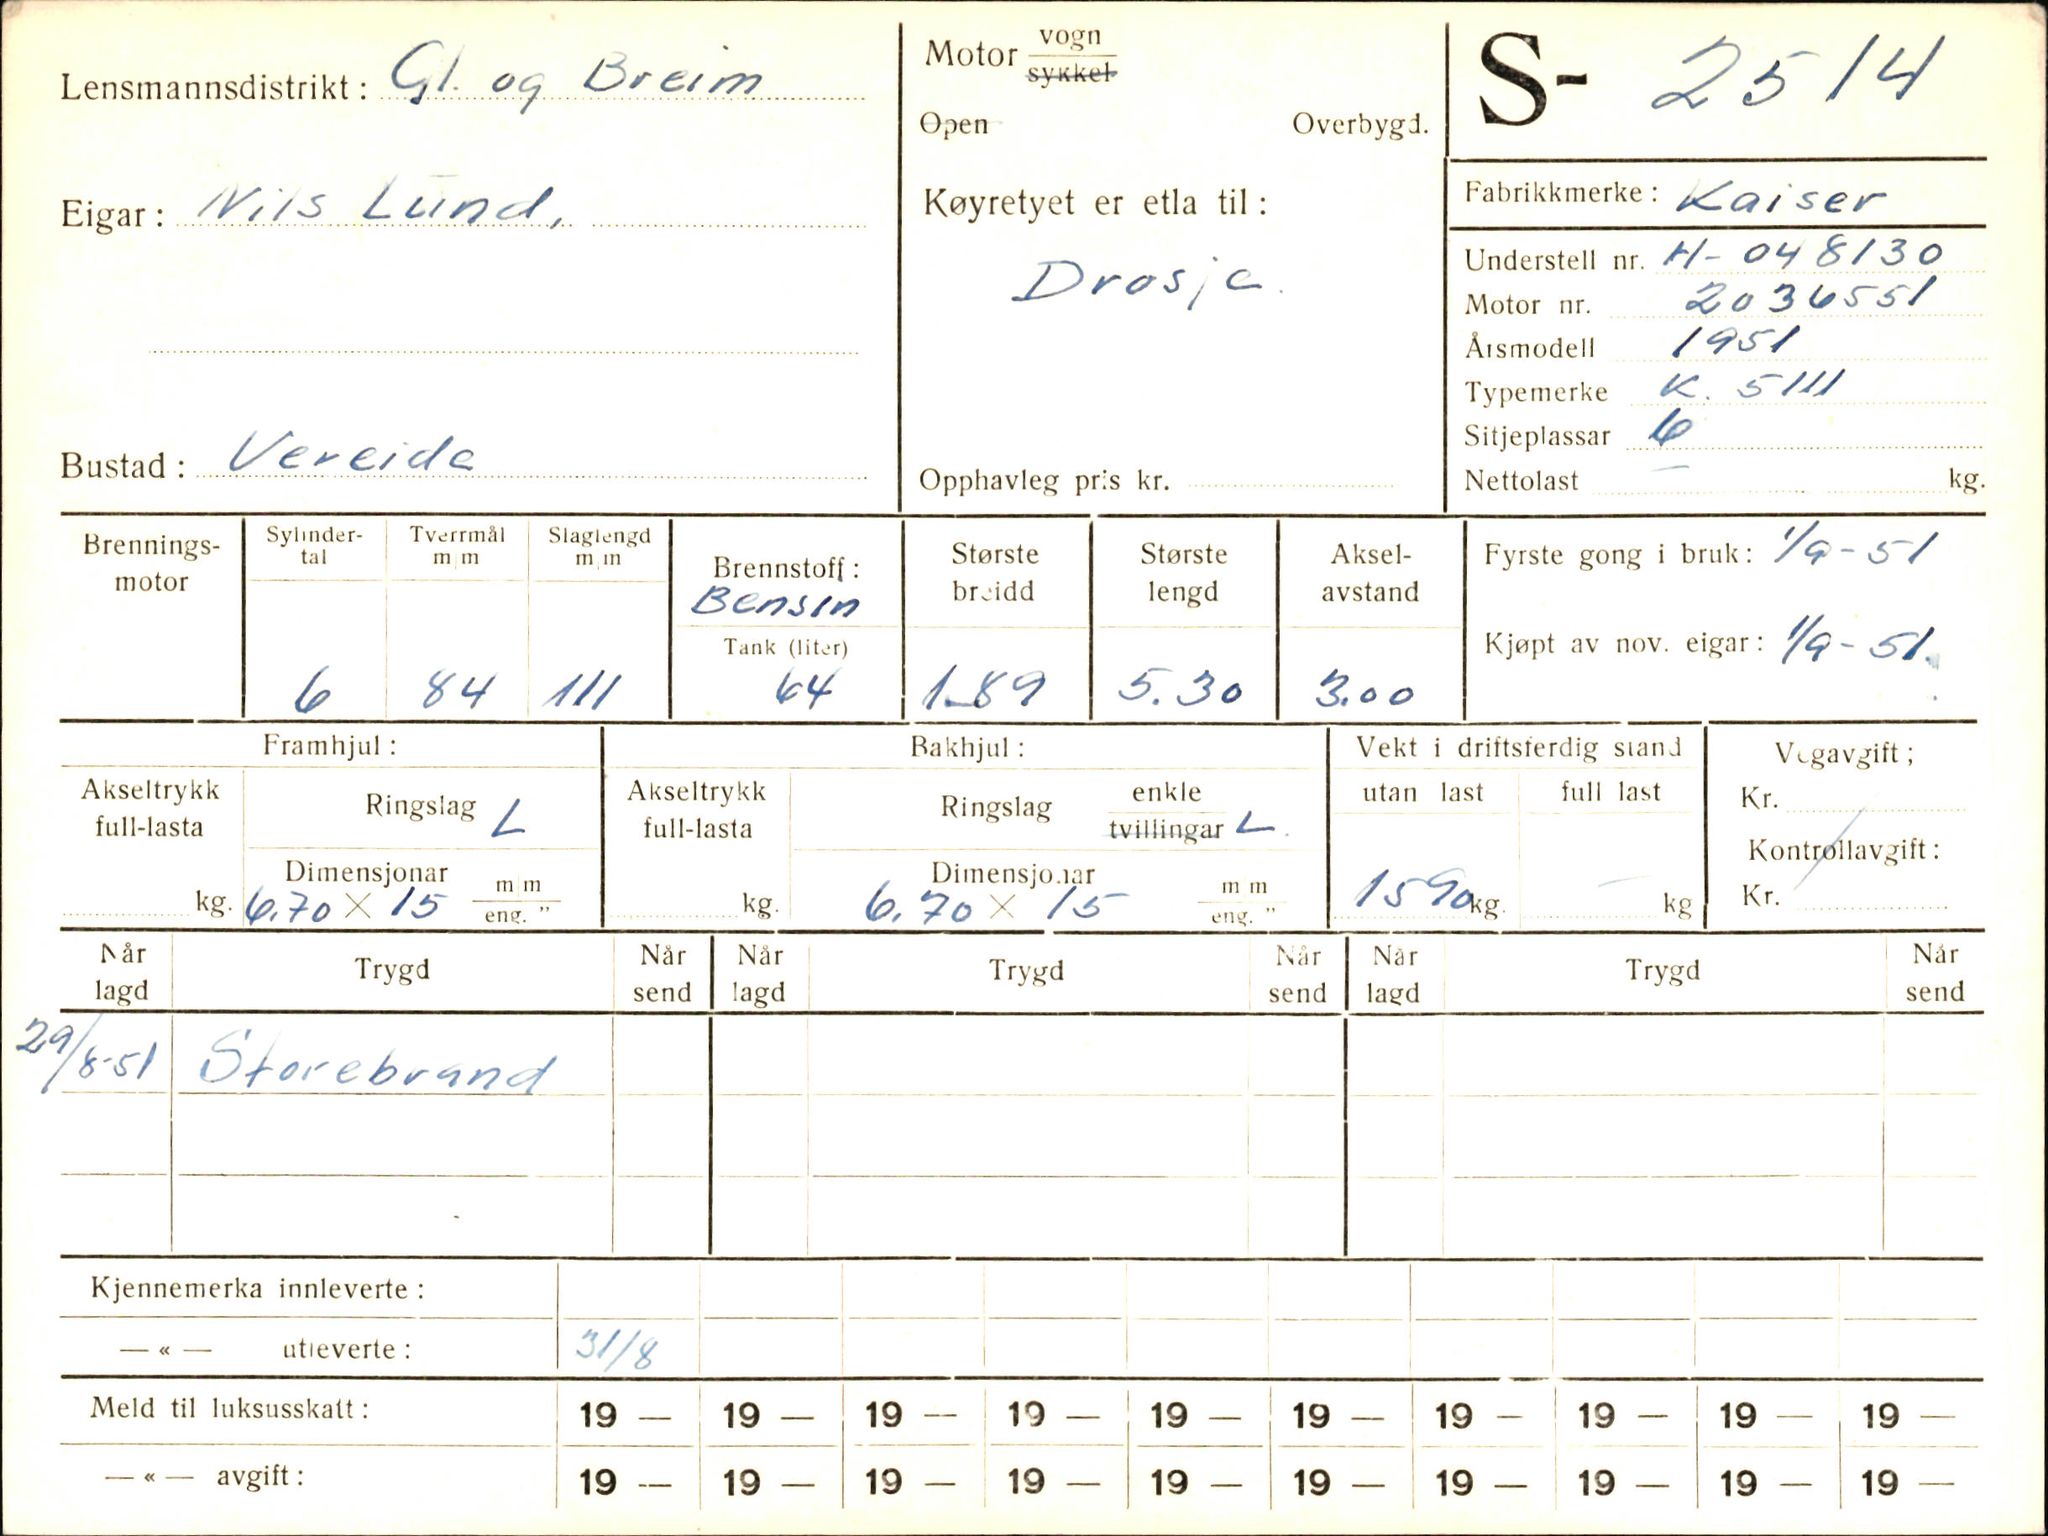 Lensmannsdistrikt: Gl. og Breim
Eigar: Nils Lund,
Bustad: Vereide
Motor vogn
sykkel
Open Overbygd.
Køyretyet er etla til:
Drosje.
Opphavleg pris kr.
S- 2514
Fabrikkmerke: Kaiser
Understell nr. H-048130
Motor nr. 2036551
Årsmodell 1951
Typemerke K. 5111
Sitjeplassar 6
Nettolast — kg.
Brennings-
motor
Sylinder-
tal
6
Tverrmål
m/m
84
Slaglengd
m/m
111
Brennstoff:
Bensin
Tank (liter)
64
Største
breidd
1.89
Største
lengd
5.30
Aksel-
avstand
3.00
Fyrste gong i bruk: 1/9-51
Kjøpt av nov. eigar: 1/9-51.
Framhjul:
Akseltrykk
full-lasta
kg.
Ringslag L
Dimensjonar
6.70 × 15 m/m
eng. "
Bakhjul:
Akseltrykk
full-lasta
kg.
Ringslag enkle
tvillingar L.
Dimensjonar
6.70 × 15 m m
eng. "
Vekt i driftsferdig stand
utan last
1590 kg.
full last
— kg
Vegavgift;
Kr.
Kontrollavgift:
Kr.
Når
lagd Trygd Når
send Når
lagd Trygd Når
send Når
lagd Trygd Når
send
29/8-51 Storebrand
Kjennemerka innleverte:
— « — utleverte: 31/8
Meld til luksusskatt: 19 — 19 — 19 — 19 — 19 — 19 — 19 — 19 — 19 — 19 —
— « — avgift: 19 — 19 — 19 — 19 — 19 — 19 — 19 — 19 — 19 — 19 —